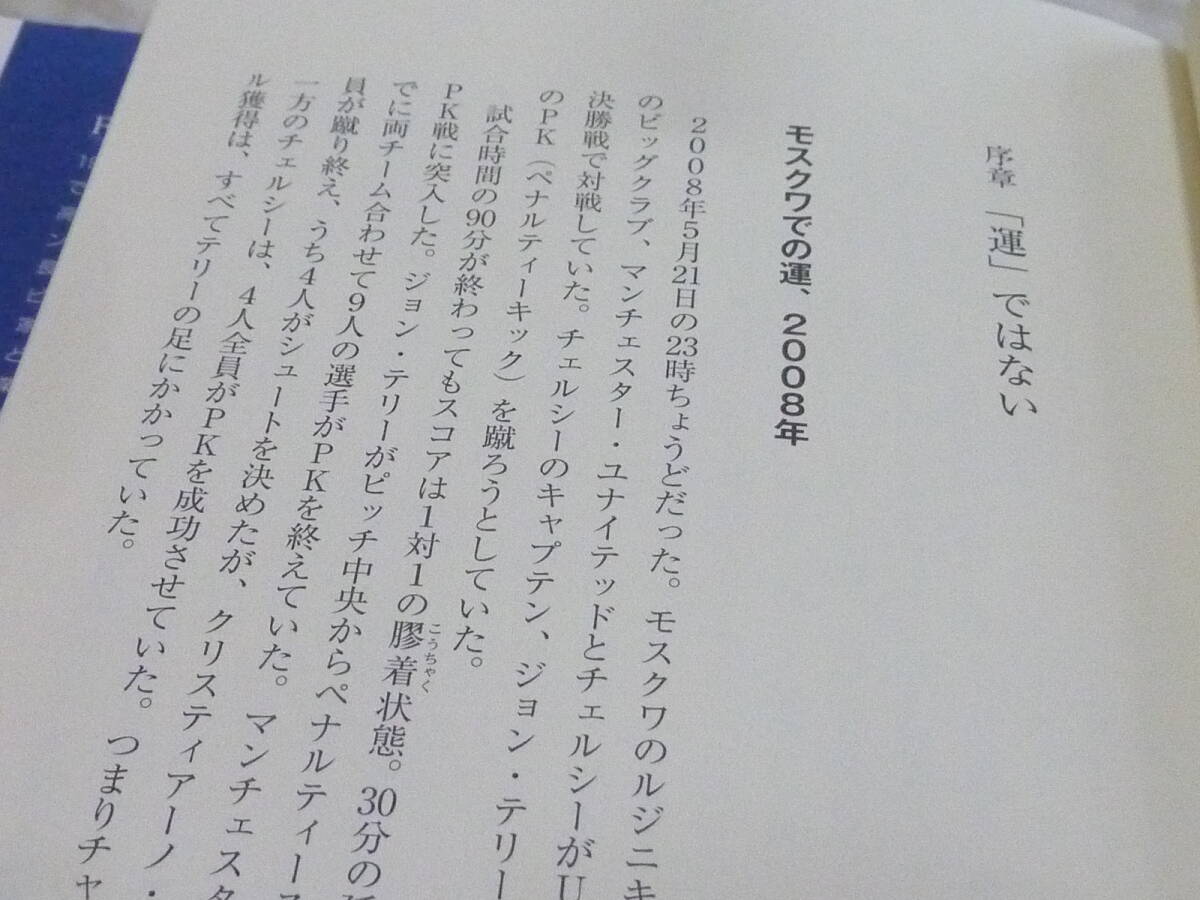 序章 「運」ではない
モスクワでの運、２００８年
２００８年５月21日の23時ちょうどだった。モスクワのルジニキ
のビッグクラブ、マンチェスター・ユナイテッドとチェルシーがU
決勝戦で対戦していた。チェルシーのキャプテン、ジョン・テリー
のPK（ペナルティーキック）を蹴ろうとしていた。
試合時間の90分が終わってもスコアは１対１の膠着状態。30分の
こうちゃく
PK戦に突入した。ジョン・テリーがピッチ中央からペナルティース
でに両チーム合わせて９人の選手がPKを終えていた。マンチェスタ
員が蹴り終え、うち４人がシュートを決めたが、クリスティアーノ・
一方のチェルシーは、４人全員がPKを成功させていた。つまりチャ
ル獲得は、すべてテリーの足にかかっていた。